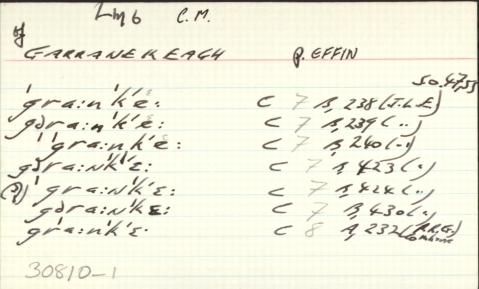 of Lmb C.M.
GARRANEKEAGH p. EFFIN
So. 47, 53
ˈgra:nˈk′ɛ: C 7 B, 238 (J.L.E)
gəra:nˈk′ɛ: C 7 B, 239 (..)
ˈgra:nˈk′ɛ: C 7 B, 240 (..)
gəra:Nˈk′ɛ: C 7 B, 423 (..)
(?) ˈgra:Nˈk′ɛ: C 7 B, 424 (..)
gəra:Nˈk′ɛ: C 7 B, 430 (..)
gra:nˈk′ɛ· C 8 A, 232
30810-1